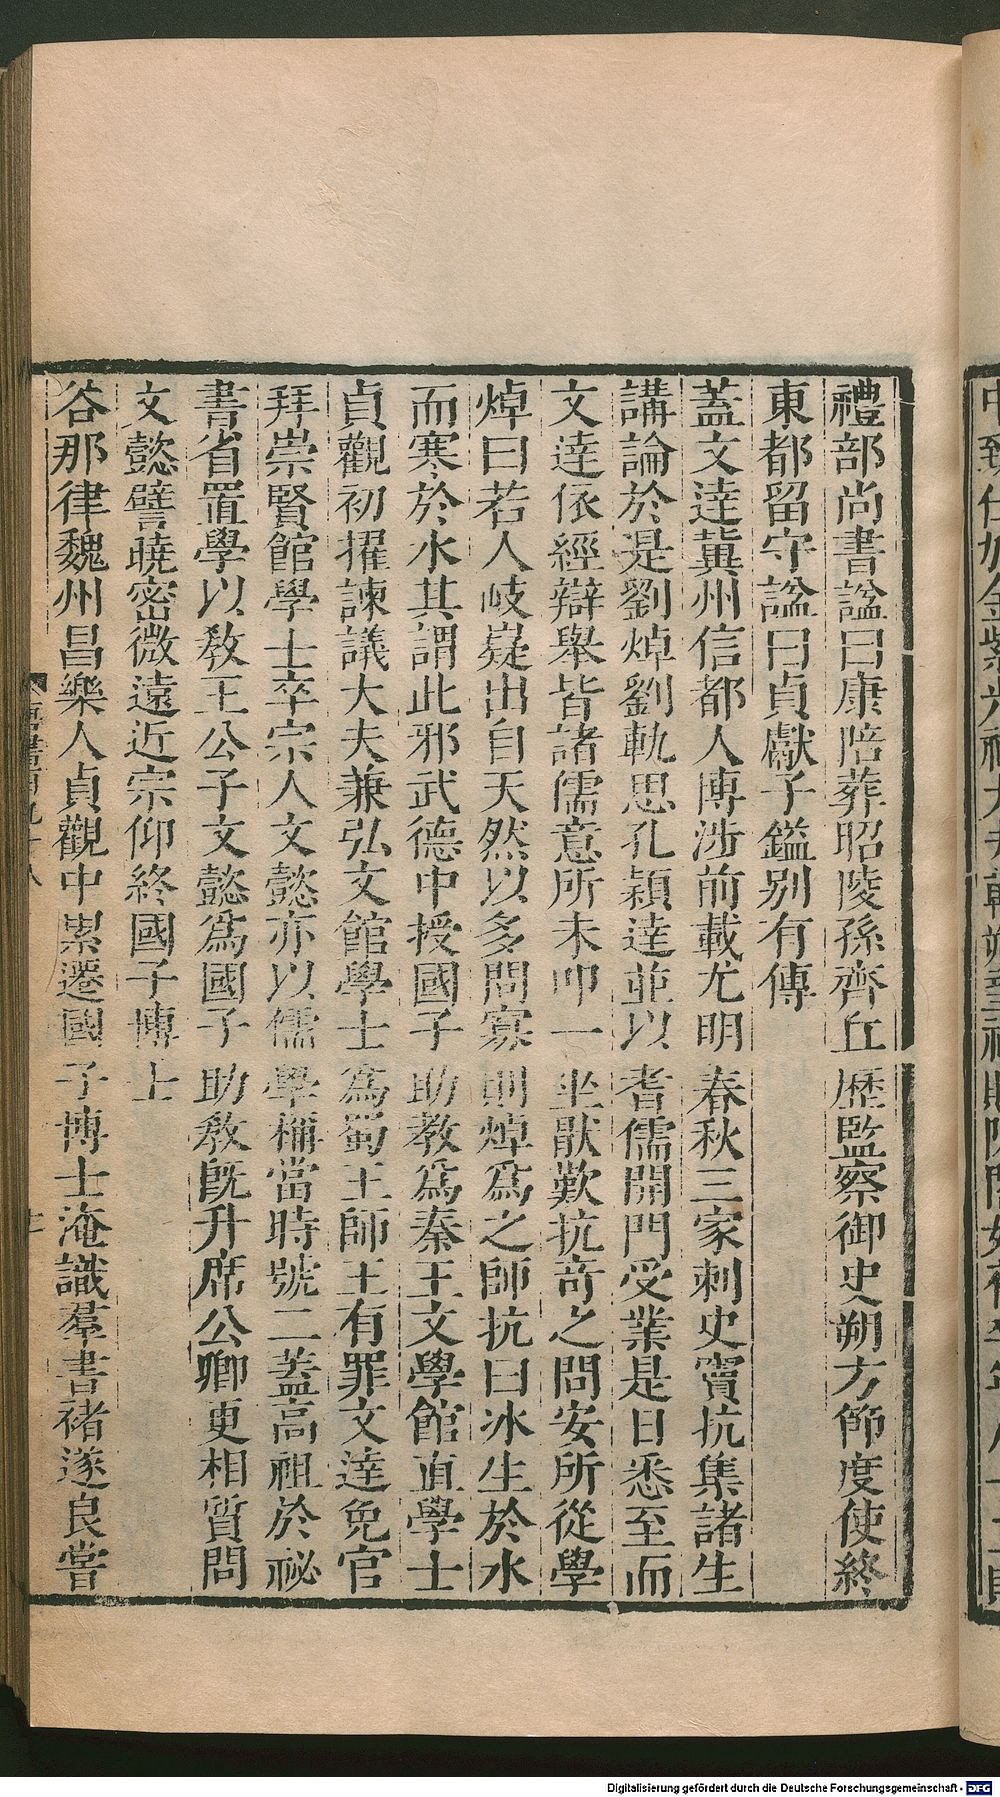 禮部尚書諡曰康陪葬昭陵孫齊丘歷監察御史朔方節度使終
東都留守諡曰貞獻子鎰别有傳
蓋文達冀州信都人博涉前載尤明春秋三家刺史竇抗集諸生
講論於是劉焯劉軌思孔穎達並以耆儒開門受業是日悉至而
文達依經辯舉皆諸儒意所未叩一坐厭歎抗竒之問安所從學
焯曰若人岐嶷出自天然以多問寡則焯爲之師抗曰冰生於水
而寒於水其謂此邪武德中授國子助教爲秦王文學館直學士
貞觀初擢諫議大夫兼弘文館學士爲蜀王師王有罪文達免官
拜崇賢館學士卒宗人文懿亦以儒學稱當時號二蓋高祖於祕
書省置學以敎王公子文懿爲國子助敎旣升席公卿更相質問
文懿譬曉密微遠近宗仰終國子博士
谷那律魏州昌樂人貞觀中累遷國子博士淹識羣書褚遂良嘗
Digitalisierung gefördert durch die Deutsche Forschungsgemeinschaft - DFG